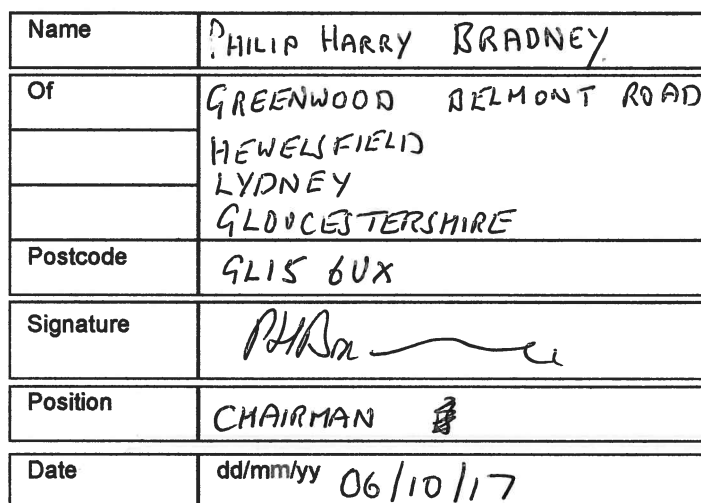 Name PHILIP HARRY BRADNEY
Of GREENWOOD BELMONT ROAD
HEWELSFIELD
LYDNEY
GLOUCESTERSHIRE
Postcode GL15 6UX
Signature
Position CHAIRMAN
Date dd/mm/yy 06/10/17